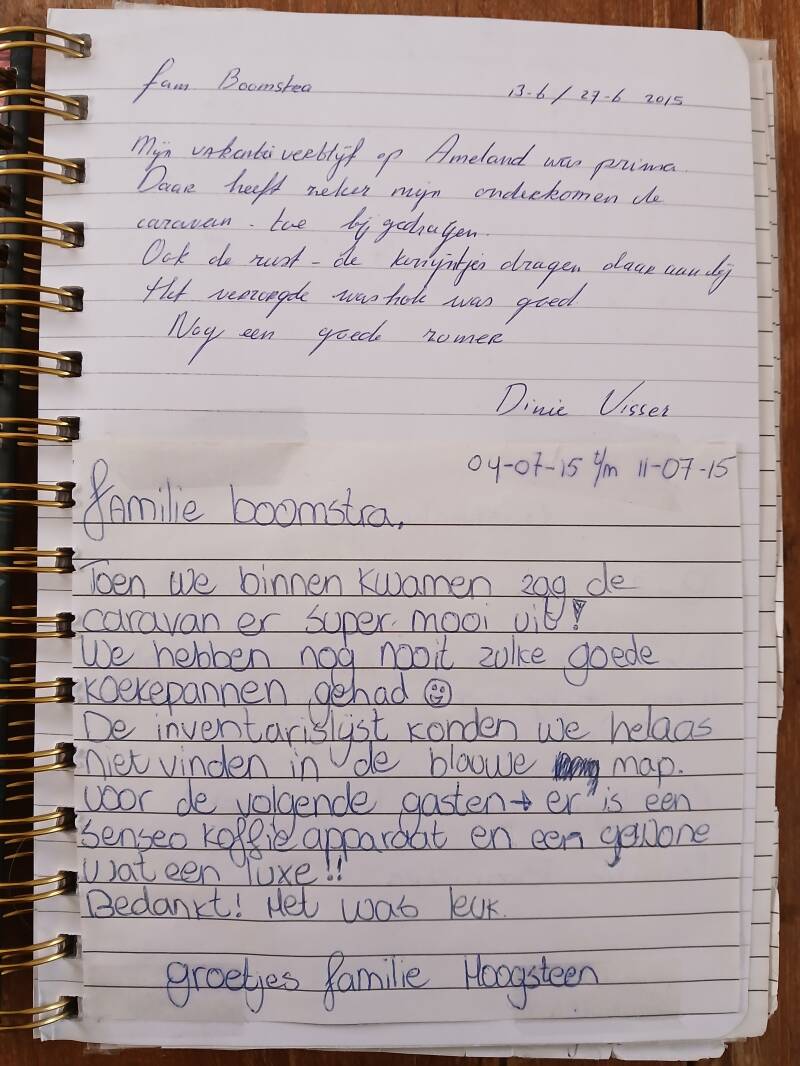 fam Boomstra 13-6 / 27-6 2015
Mijn vakantieverblijf op Ameland was prima.
Daar heeft zeker mijn onderkomen de
caravan - toe bij gedragen.
Ook de rust - de konijntjes dragen daar aan bij
Het verzorgde washok was goed.
Nog een goede zomer
Dinie Visser
04-07-15 t/m 11-07-15
familie boomstra,
Toen we binnen kwamen zag de
caravan er super mooi uit!
We hebben nog nooit zulke goede
koekepannen gehad ☺
De inventarislijst konden we helaas
niet vinden in de blauwe map.
voor de volgende gasten → er is een
senseo koffie apparaat en een gewone
wat een luxe!!
Bedankt! Het was leuk.
groetjes familie Hoogsteen